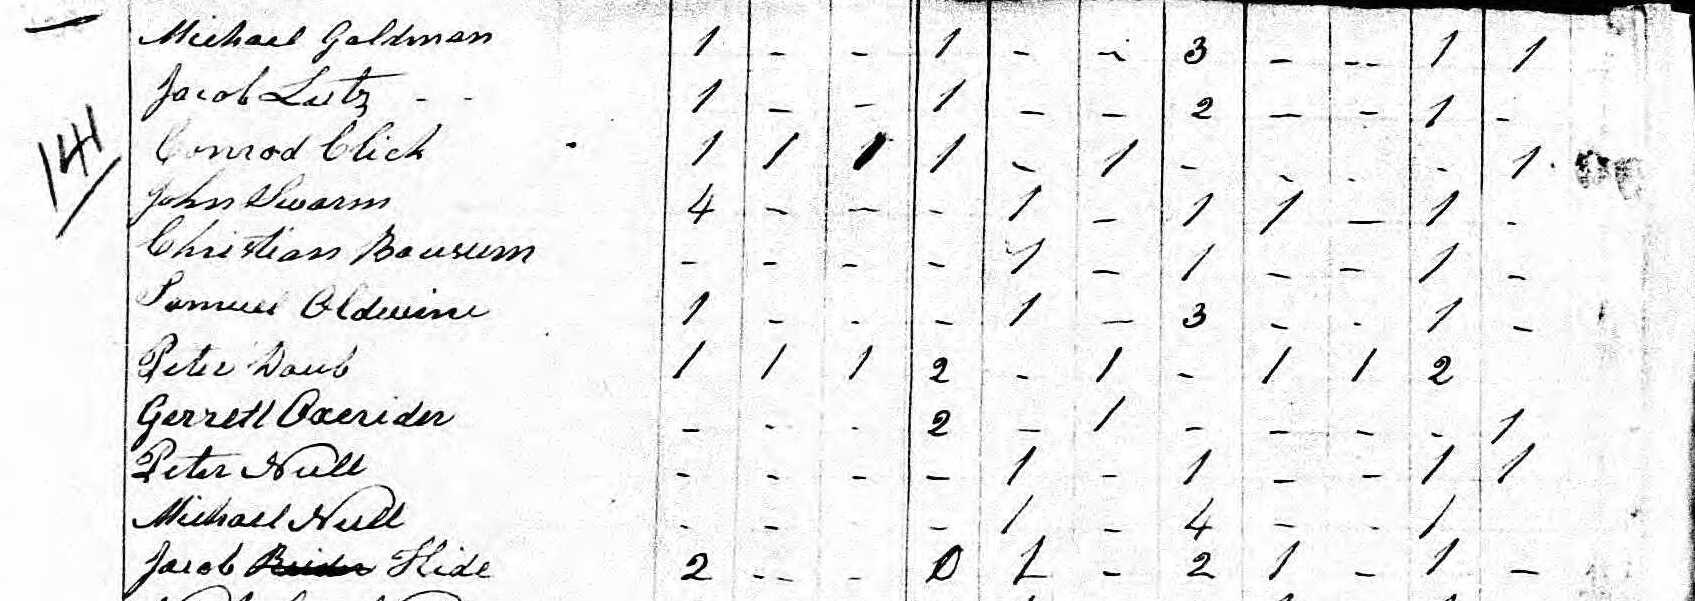 Michael Goldman 1 - - 1 - - 3 - - 1 1
Jacob Lutz - - 1 - - 1 - - 2 - - 1 -
141
Conrod Click 1 1 1 1 - 1 - - - - 1
John Swarm 4 - - - 1 - 1 1 - 1 -
Christian Bousum - - - - 1 - 1 - - 1 -
Samuel Oldwine 1 - - - 1 - 3 - - 1 -
Peter Daub 1 1 1 2 - 1 - 1 1 2
Gerrett Oxerider - - - 2 - 1 - - - - 1
Peter Null - - - - 1 - 1 - - 1 1
Michael Null - - - - 1 - 4 - - 1
Jacob Hide 2 - - - 1 - 2 1 - 1 -